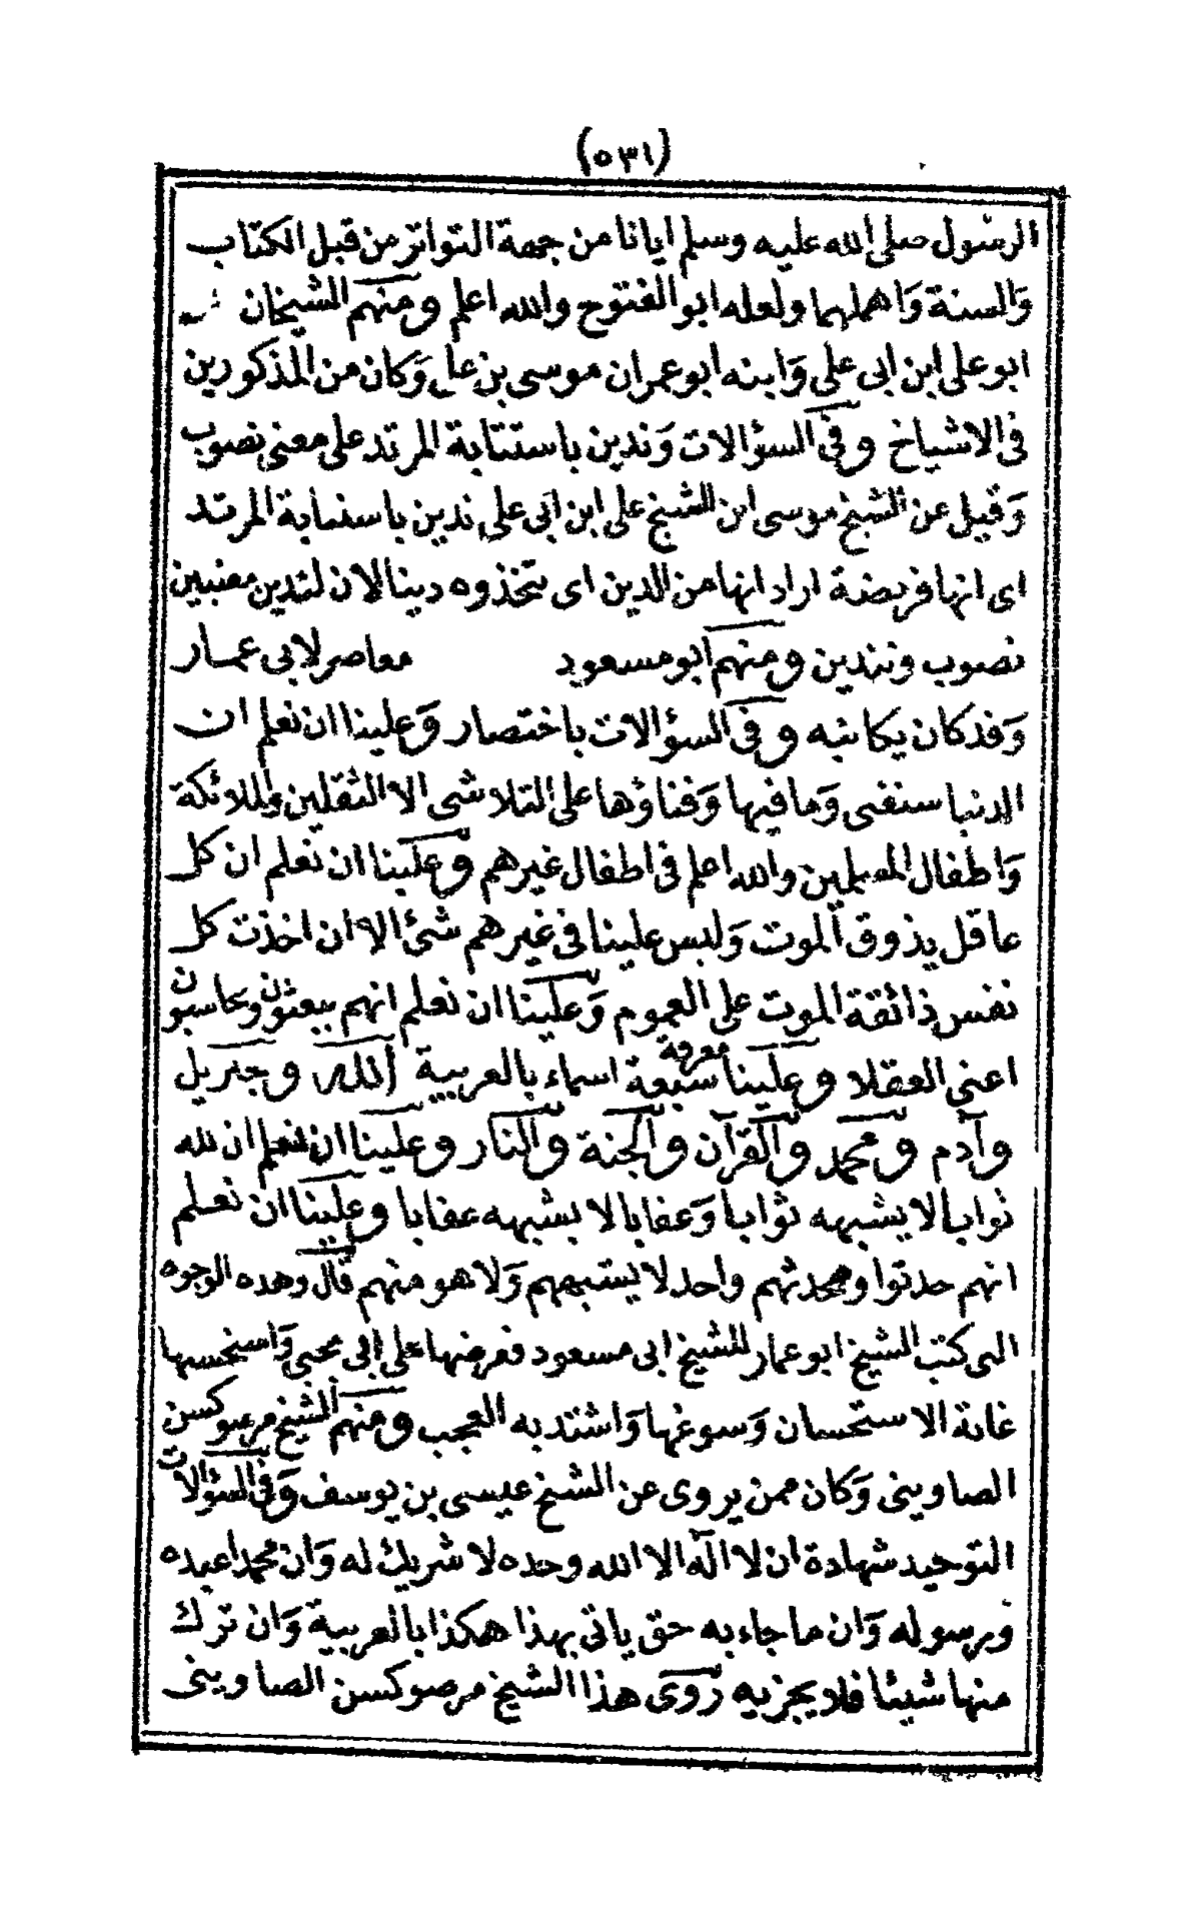 (٥٣١)
الرسول صلى الله عليه وسلم ايانا من جهة التواتر من قبل الكتاب
والسنة واهلهما ولعله ابو الفتوح والله اعلم ومنهم الشيخان
ابو على ابن ابى على وابنه ابو عمران موسى بن على وكان من المذكورين
فى الاشياخ وفى السؤالات وندين باستتابة المرتد على معنى نصوب
وقيل عن الشيخ موسى ابن الشيخ على ابن ابى على ندين باستتابة المرتد
اى انها فريضة اراد انها من الدين اى يتخذوه دينا الان لتدين معنيين
نصوب ونندين ومنهم ابو مسعود معاصر لابى عمار
وقد كان يكاتبه وفى السؤالات باختصار وعلينا ان نعلم ان
الدنيا ستفنى وما فيها وفناؤها على التلاشى الا الثقلين والملائكة
واطفال المسلمين والله اعلم فى اطفال غيرهم وعلينا ان نعلم ان كل
عاقل يذوق الموت وليس علينا فى غيرهم شئ الا ان اخذت كل
نفس ذائقة الموت على العموم وعلينا ان نعلم انهم يبعثون ويحاسبون
اعنى العقلا وعلينا معرفة سبعة اسماء بالعربية الله وجبريل
وآدم ومحمد والقرآن والجنة والنار وعلينا ان نعلم ان لله
ثوابا لا يشبهه ثوابا وعقابا لا يشبهه عقابا وعلينا ان نعلم
انهم حدثوا ومحدثهم واحد لا يشبههم ولا هو منهم قال وهده الوجوه
التى كتب الشيخ ابو عمار للشيخ ابى مسعود فعرضها على ابى يحيى واستحسنها
غاية الاستحسان وسوغها واشتد به العجب ومنهم الشيخ مرصوكسن
الصاوينى وكان ممن يروى عن الشيخ عيسى بن يوسف وفى السؤالات
التوحيد شهادة ان لا اله الا الله وحده لا شريك له وان محمدا عبده
ورسوله وان ما جاء به حق ياتى بهذا هكذا بالعربية وان ترك
منها شيئا فلا يجزيه روى هذا الشيخ مرصوكسن الصاوينى